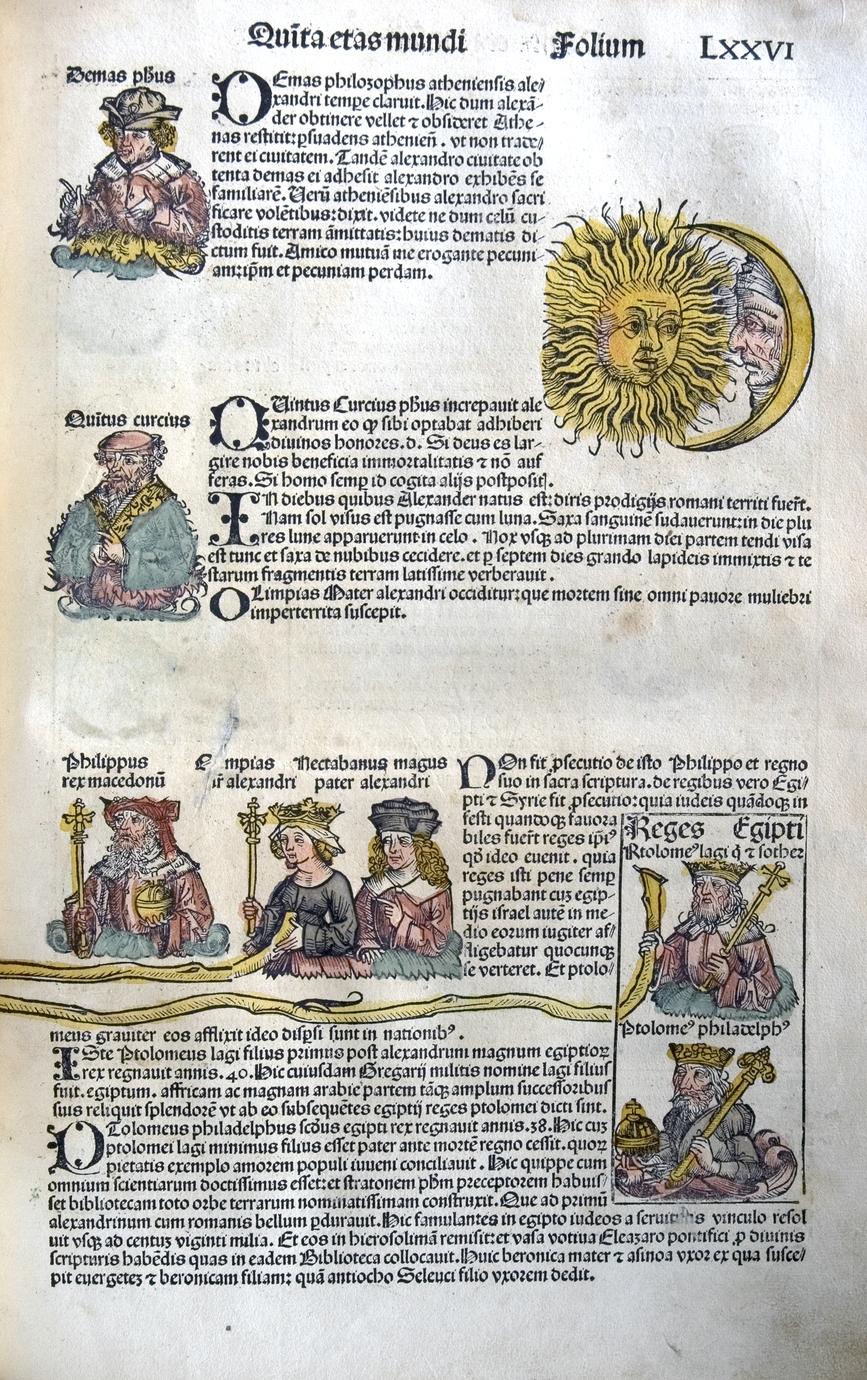 Quīta etas mundi Folium LXXVI
Demas phūs
DEmas philozophus atheniensis ale/
xandri tempe claruit. Hic dum alexā-
der obtinere vellet ⁊ obsideret Athe-
nas restitit: psuadens athenien̄. vt non trade/
rent ei ciuitatem. Tandē alexandro ciuitate ob
tenta demas ei adhesit alexandro exhibēs se
familiarē. Verū atheniēsibus alexandro sacri
ficare volētibus: dixit. videte ne dum celū cu-
stoditis terram āmittatis: huius dematis di-
ctum fuit. Amico mutuā me erogante pecuni-
am: ip̄m et pecuniam perdam.
Quītus curcius
QUintus Curcius phūs increpauit ale
xandrum eo ꝙ sibi optabat adhiberi
diuinos honores. d. Si deus es lar-
gire nobis beneficia immortalitatis ⁊ nō auf
feras. Si homo semp id cogita alijs postpositꝭ.
IN diebus quibus Alexander natus est: diris prodigijs romani territi fuerūt.
Nam sol visus est pugnasse cum luna. Saxa sanguinē sudauerunt: in die plu
res lune apparuerunt in celo. Nox vsꝙ ad plurimam diei partem tendi visa
est tunc et saxa de nubibus cecidere. et p septem dies grando lapideis immixtis ⁊ te
starum fragmentis terram latissime verberauit.
OLimpias Mater alexandri occiditur: que mortem sine omni pauore muliebri
imperterrita suscepit.
Philippus
rex macedonū
mpias
alexandri
Nectabanus magus
pater alexandri
NOn fit ꝓsecutio de isto Philippo et regno
suo in sacra scriptura. de regibus vero Egi/
pti ⁊ Syrie fit ꝓsecutio: quia iudeis quādoqꝫ in
festi quandoqꝫ fauora
biles fuerūt reges ip̄i⁹
qd̄ ideo euenit. quia
reges isti pene semp
pugnabant cuꝫ egip-
tijs israel autē in me-
dio eorum iugiter af/
fligebatur quocunqꝫ
se verteret. Et ptolo/
Reges Egipti
Ptolome⁹ lagi q̄ ⁊ sother
Ptolome⁹ philadelph⁹
meus grauiter eos afflixit ideo disp̄si sunt in nationib⁹.
ISte Ptolomeus lagi filius primus post alexandrum magnum egiptioꝝ
rex regnauit annis. 40. Hic cuiusdam Gregarij militis nomine lagi filius
fuit. egiptum. affricam ac magnam arabie partem tāqꝫ amplum successoribus
suis reliquit splendorē vt ab eo subsequētes egiptij reges ptolomei dicti sint.
PTolomeus philadelphus scd̄us egipti rex regnauit annis. 38. Hic cuꝫ
ptolomei lagi minimus filius esset pater ante mortē regno cessit. quoꝝ
pietatis exemplo amorem populi iuueni conciliauit. Hic quippe cum
omnium scientiarum doctissimus esset: et stratonem phm̄ preceptorem habuis/
set bibliotecam toto orbe terrarum nominatissimam construxit. Que ad primū
alexandrinum cum romanis bellum pdurauit. Hic famulantes in egipto iudeos a seruitutis vinculo resol
uit vsqꝫ ad centuꝫ viginti milia. Et eos in hierosolimā remisit: et vasa votiua Eleazaro pontifici ꝓ diuinis
scripturis habēdis quas in eadem Biblioteca collocauit. Huic beronica mater ⁊ asinoa vxor ex qua susce/
pit euergeteꝫ ⁊ beronicam filiam: quā antiocho Seleuci filio vxorem dedit.